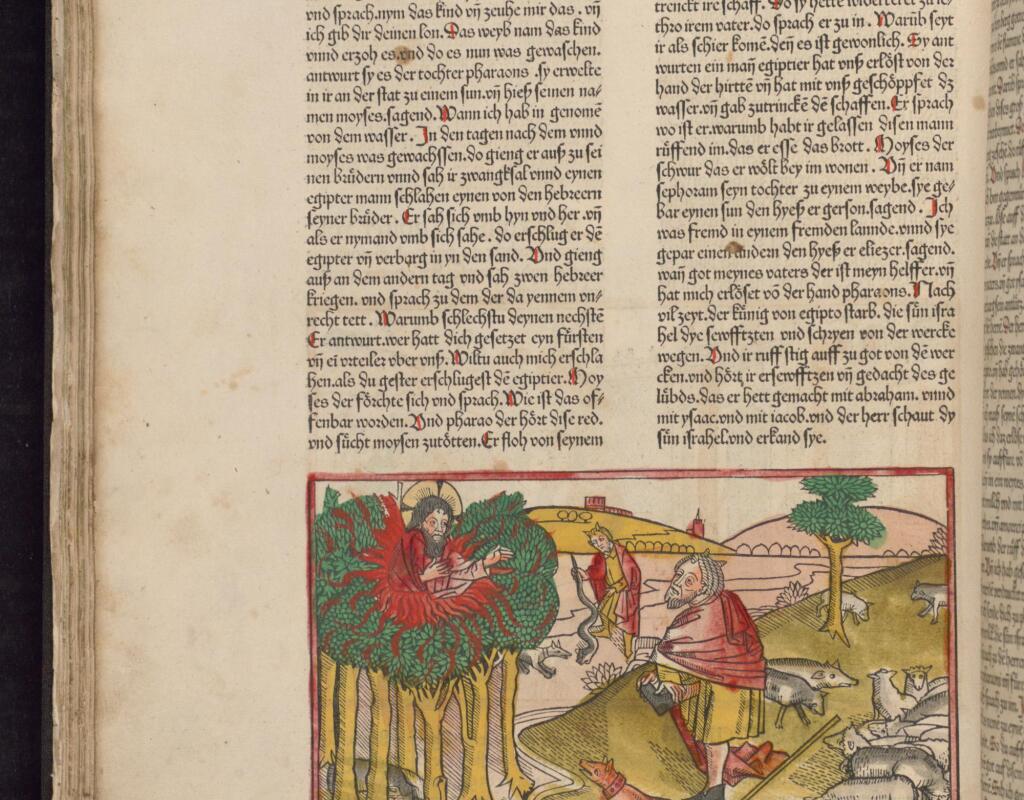 vnd sprach.nym das kind vñ zeuhe mir das . vñ
ich gib dir deinen lon. Das weyb nam das kind
vnnd erzoh es vnd do es nun was gewaschen.
antwurt sy es der tochter pharaons .sy erwelte
in ir an der stat zu einem sun.vñ hieß seinen na⸗
men moyses.sagend.Wann ich hab in genomẽ
von dem wasser . In den tagen nach dem vnnd
moyses was gewachssen.do gieng er auß zu sei
nen brüdern vnnd sah ir zwangksal vnnd eynen
egipter mann schlahen eynen von den hebreern
seyner brüder. Er sah sich vmb hyn vnd her .vñ
als er nymand vmb sich sahe . do erschlug er dẽ
egipter vñ verbarg in yn den sand. Vnd gieng
auß an dem andern tag vnd sah zwen hebreer
kriegen. vnd sprach zu dem der da yennem vn⸗
recht tett . Warumb schlechstu deynen nechstẽ
Er antwurt.wer hatt dich gesetzet eyn fürsten
vñ ei vrteiler vber vnß.Wiltu auch mich erschla
hen.als du gester erschlugest dẽ egiptier.Moy
ses der förchte sich vnd sprach.Wie ist das of⸗
fenbar worden. Vnd pharao der hört dise red.
vnd sücht moysen zutötten.Er floh von seynem
trenckt ire schaff. Do sy hette
thro irem vater.do sprach er zu in . Warüb seyt
ir als schier komẽ.deñ es ist gewonlich. Sy ant
wurten ein mañ egiptier hat vnß erlöst von der
hand der hirttẽ vñ hat mit vnß geschöppfet dz
wasser.vñ gab zutrinckẽ dẽ schaffen.Er sprach
wo ist er.warumb habt ir gelassen disen mann
rüffend im.das er esse das brott . Moyses der
schwur das er wölt bey im wonen . Vñ er nam
sephoram seyn tochter zu eynem weybe.sye ge⸗
bar eynen sun den hyeß er gerson.sagend . Ich
was fremd in eynem fremden lannde.vnnd sye
gepar einen andern den hyeß er eliezer.sagend.
wañ got meynes vaters der ist meyn helffer.vñ
hat mich erlöset võ der hand pharaons. Nach
vil zeyt.der künig von egipto starb. die sün isra
hel dye sewfftzten vnd schryen von der wercke
wegen. Vnd ir ruff stig auff zu got von dẽ wer
cken.vnd hört ir ersewfftzen vñ gedacht des ge
lübds.das er hett gemacht mit abraham. vnnd
mit ysaac.vnd mit iacob.vnd der herr schaut dy
sün israhel.vnd erkand sye.